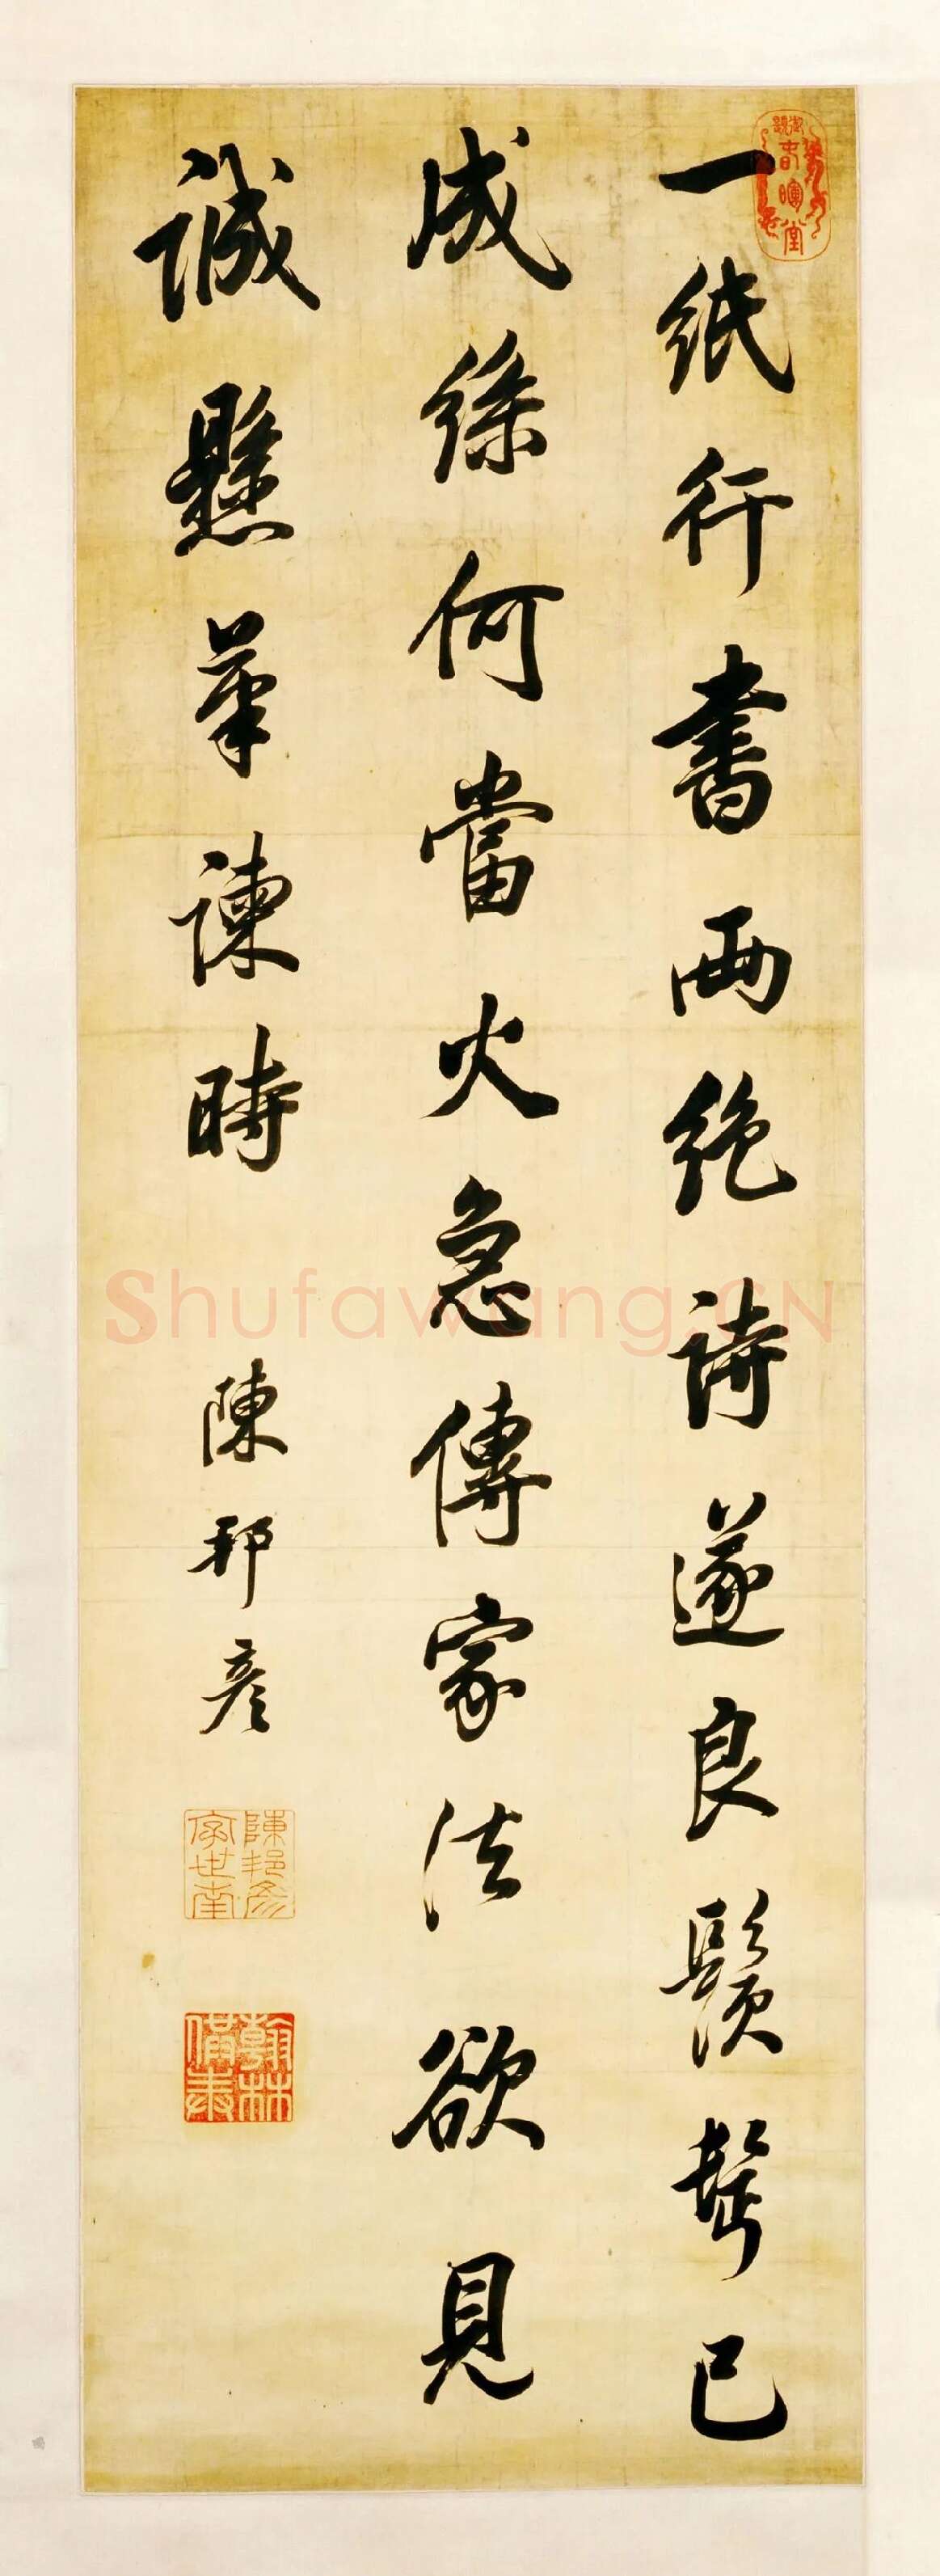 一紙行書兩絕詩遂良鬚髩已
成絲何當火急傳家法欲見
誠懸筆諫時
陳邦彥
陳邦彥字世南
翰林備書
春暉堂
Shufawang.CN